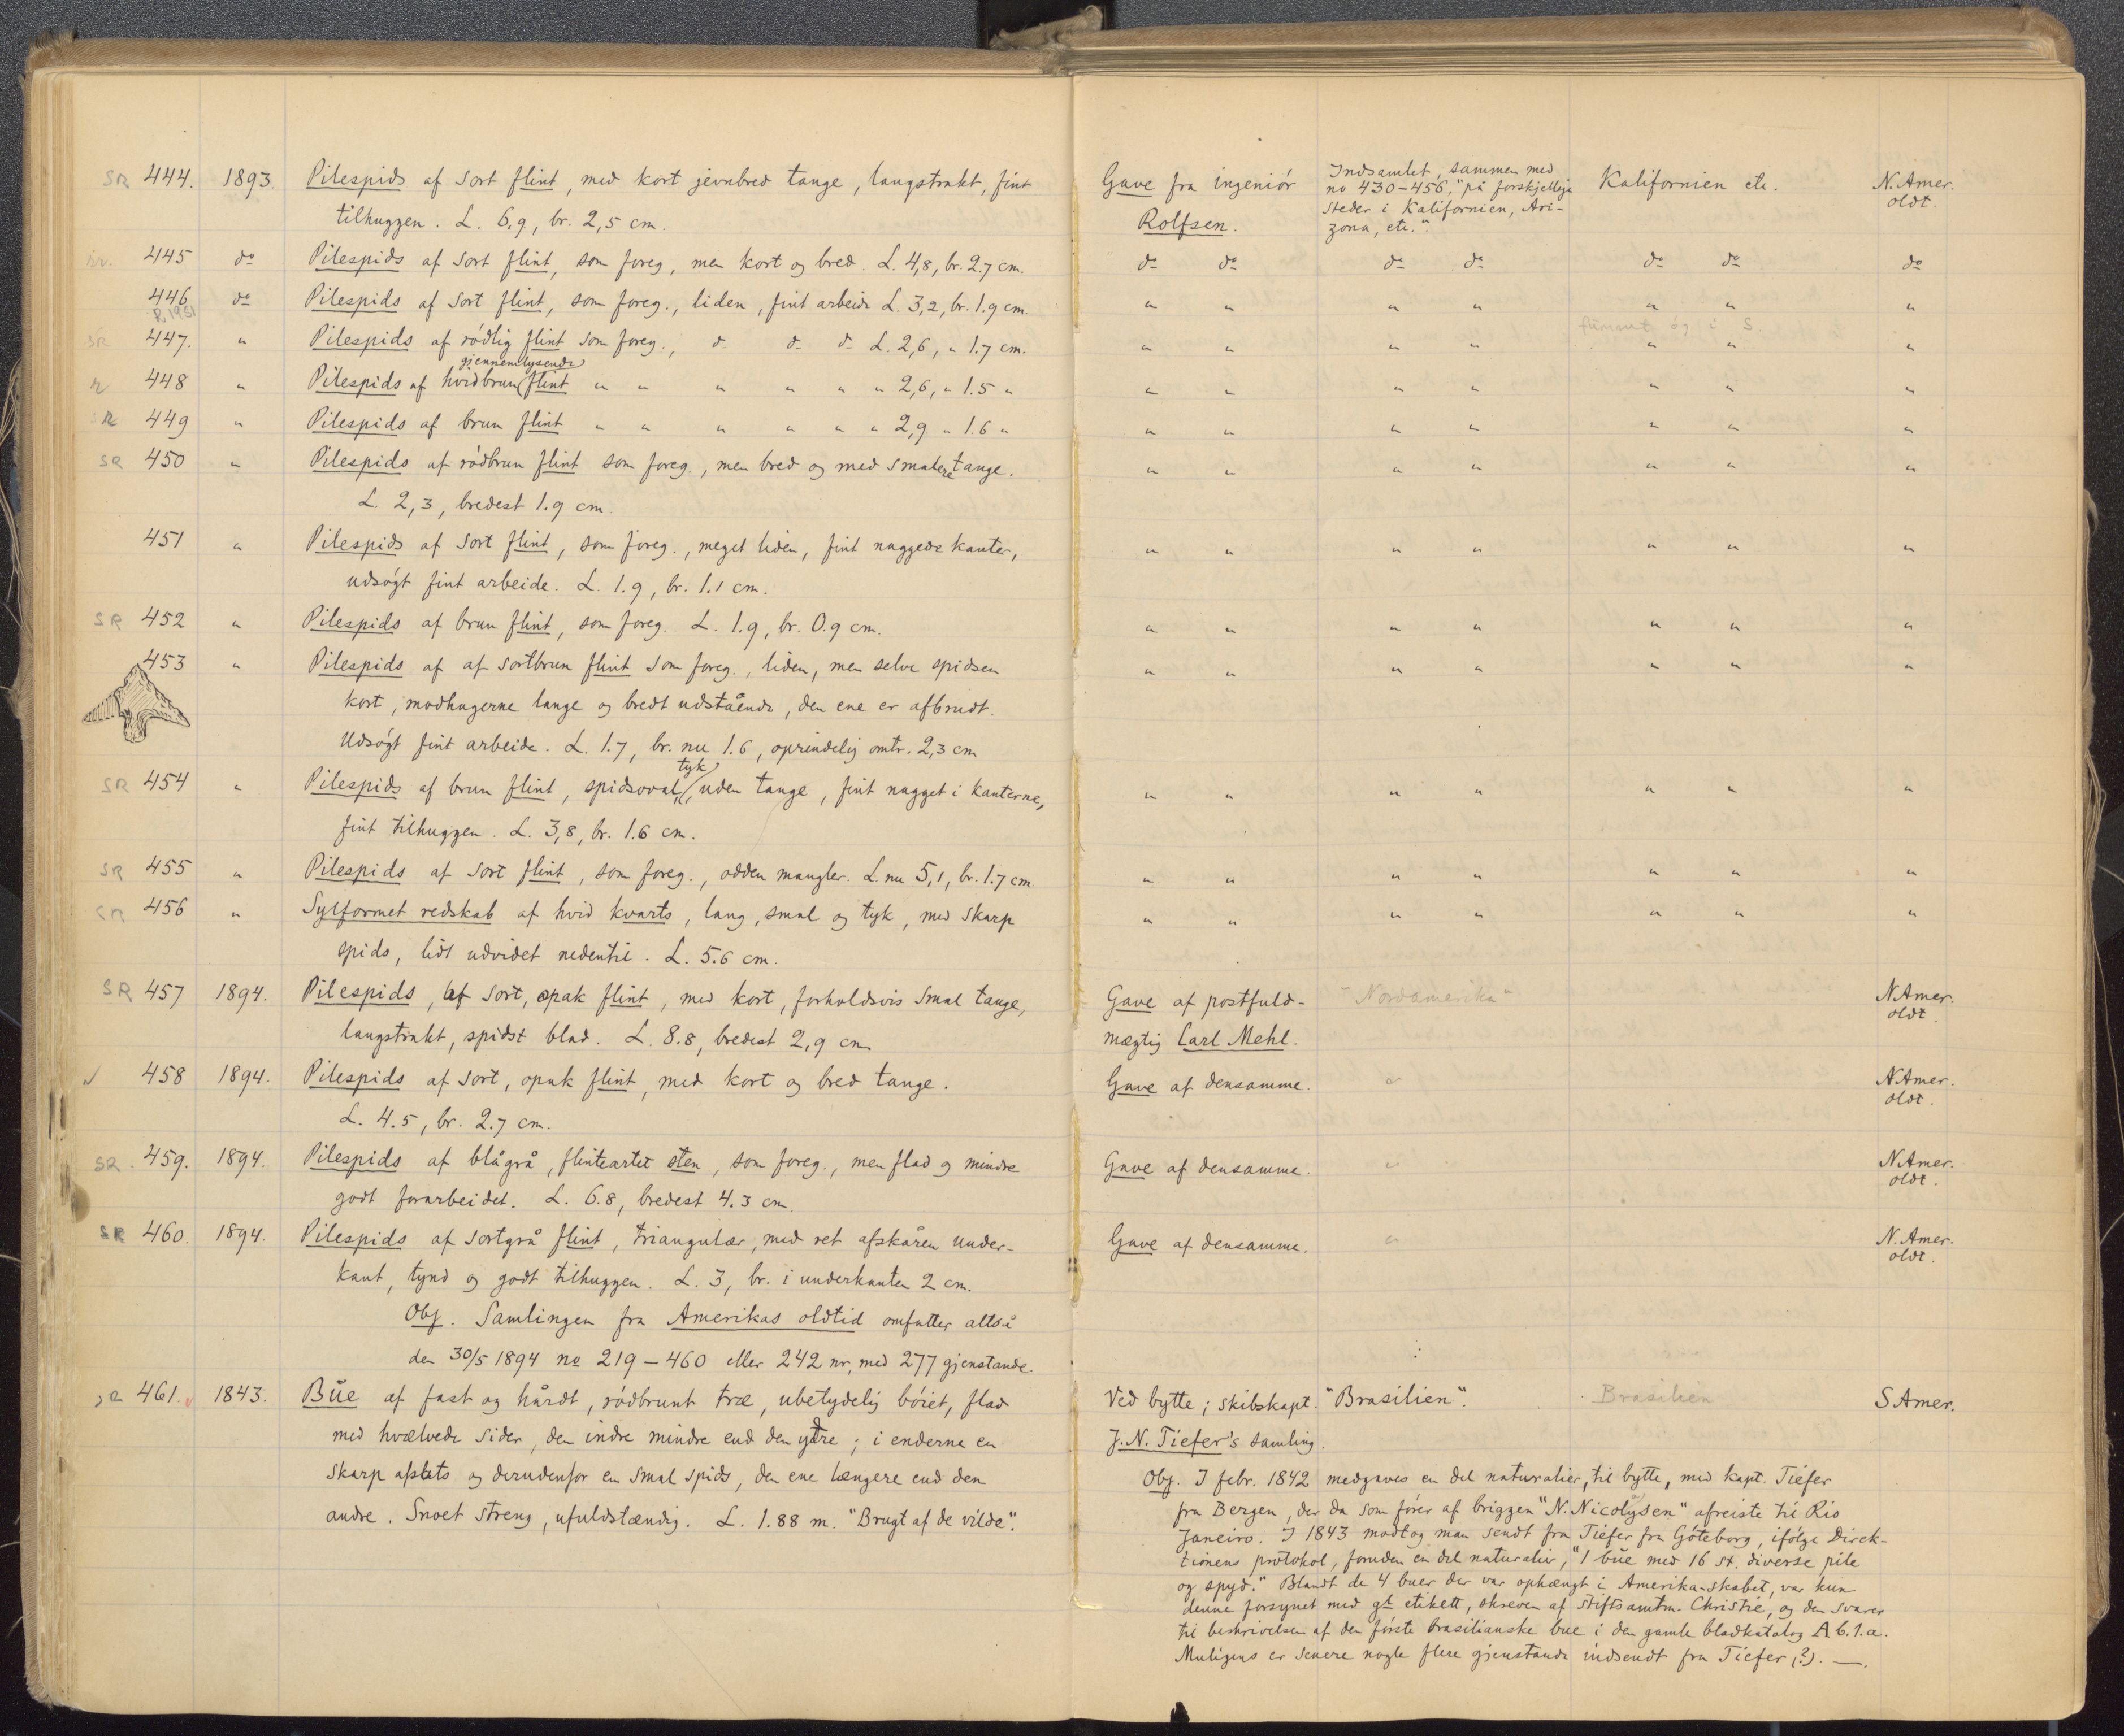 SR 444. 1893. Pilespids af sort flint, med kort jevnbred tange, langstrakt, fint
tilhuggen. L. 6,9, br. 2,5 cm.
445 do Pilespids af sort flint, som foreg, men kort og bred. L. 4,8, br. 2.7 cm.
446 do Pilespids af sort flint, som foreg., liden, fint arbeide L. 3,2, br. 1.9 cm
R. 1951
SR 447. " Pilespids af rödlig flint som foreg., do do do L. 2,6, " 1.7 cm.
gjennemlysende
448 " Pilespids af hvidbrun flint " " " " " " 2,6, " 1.5 "
R 449 " Pilespids af brun flint " " " " " " 2,9 " 1.6 "
SR 450 " Pilespids af rödbrun flint som foreg., men bred og med smalere tange.
L. 2,3, bredest 1.9 cm.
451 " Pilespids af sort flint, som foreg., meget liden, fint nuggede kanter,
udsögt fint arbeide. L. 1.9, br. 1.1 cm.
SR 452 " Pilespids af brun flint, som foreg. L. 1.9, br. 0.9 cm.
453 " Pilespids af af sortbrun flint som foreg., liden, men selve spidsen
kort, modhagerne lange og bredt udstående, den ene er afbrudt.
Udsögt fint arbeide. L. 1.7, br. nu 1.6, oprindelig omtr. 2,3 cm
tyk
SR 454 " Pilespids af brun flint, spidsoval, uden tange, fint nugget i kanterne,
fint tilhuggen. L. 3,8, br. 1.6 cm.
SR 455 " Pilespids af sort flint, som foreg., odden mangler. L. nu 5,1, br. 1.7 cm.
SR 456 " Sylformet redskab af hvid kvarts, lang, smal og tyk, med skarp
spids, lidt udvidet nedentil. L. 5.6 cm.
SR 457 1894. Pilespids, af sort, opak flint, med kort, forholdsvis smal tange,
langstrakt, spidst blad. L. 8.8, bredest 2,9 cm
458 1894. Pilespids af sort, opak flint, med kort og bred tange.
L. 4.5, br. 2.7 cm.
SR 459. 1894. Pilespids af blågrå, flinteartet sten, som foreg., men flad og mindre
godt forarbeidet. L. 6.8, bredest 4.3 cm
SR 460. 1894. Pilespids af sortgrå flint, triangulær, med ret afskåren under-
kant, tynd og godt tilhuggen. L. 3, br. i underkanten 2 cm.
Obs. Samlingen fra Amerikas oldtid omfatter altså
den 30/5 1894 no 219 – 460 eller 242 nr, med 277 gjenstande.
SR 461. 1843. Bue af fast og hårdt, rödbrunt træ, ubetydelig böiet, flad
med hvælvede sider, den indre mindre end den ydre; i enderne en
skarp afsats og derudenfor en smal spids, den ene længere end den
andre. Snoet streng, ufuldstændig. L. 1.88 m. "Brugt af de vilde".
Gave fra ingeniör
Rolfsen.
Indsamlet, sammen med
no 430–456, "på forskjellige
steder i Kalifornien, Ari-
zona, etc."
Kalifornien etc.
N. Amer.
oldt.
do do do do do do do
" " " " " " "
" " " " " " "
" " " " " " "
" " " " " " "
" " " " " " "
" " " " " " "
" " " " " " "
" " " " " " "
" " " " " " "
" " " " " " "
" " " " " " "
Gave af postfuld-
mægtig Carl Mehl.
"Nordamerika"
N Amer.
oldt.
Gave af densamme. "
N Amer.
oldt.
Gave af densamme. "
N Amer.
oldt.
Gave af densamme. "
N. Amer.
oldt.
Ved bytte; skibskapt. "Brasilien". Brasilien S Amer.
J. N. Tiefer's samling.
Obs. I febr. 1842 medgaves en del naturalier, til bytte, med kapt. Tiefer
fra Bergen, der da som förer af briggen "N. Nicolysen" afreiste til Rio
Janeiro. I 1843 modtog man sendt fra Tiefer fra Göteborg, ifölge Direk-
tionens protokol, foruden en del naturalier, "1 bue med 16 st. diverse pile
og spyd." Blandt de 4 buer der var ophængt i Amerika-skabet, var kun
denne forsynet med gl. etikett, skreven af stiftsamtm. Christie, og den svarer
til beskrivelsen af den förste brasilianske bue i den gamle bladkatalog A b. 1. a.
Muligens er senere nogle flere gjenstande indsendt fra Tiefer (?). —.